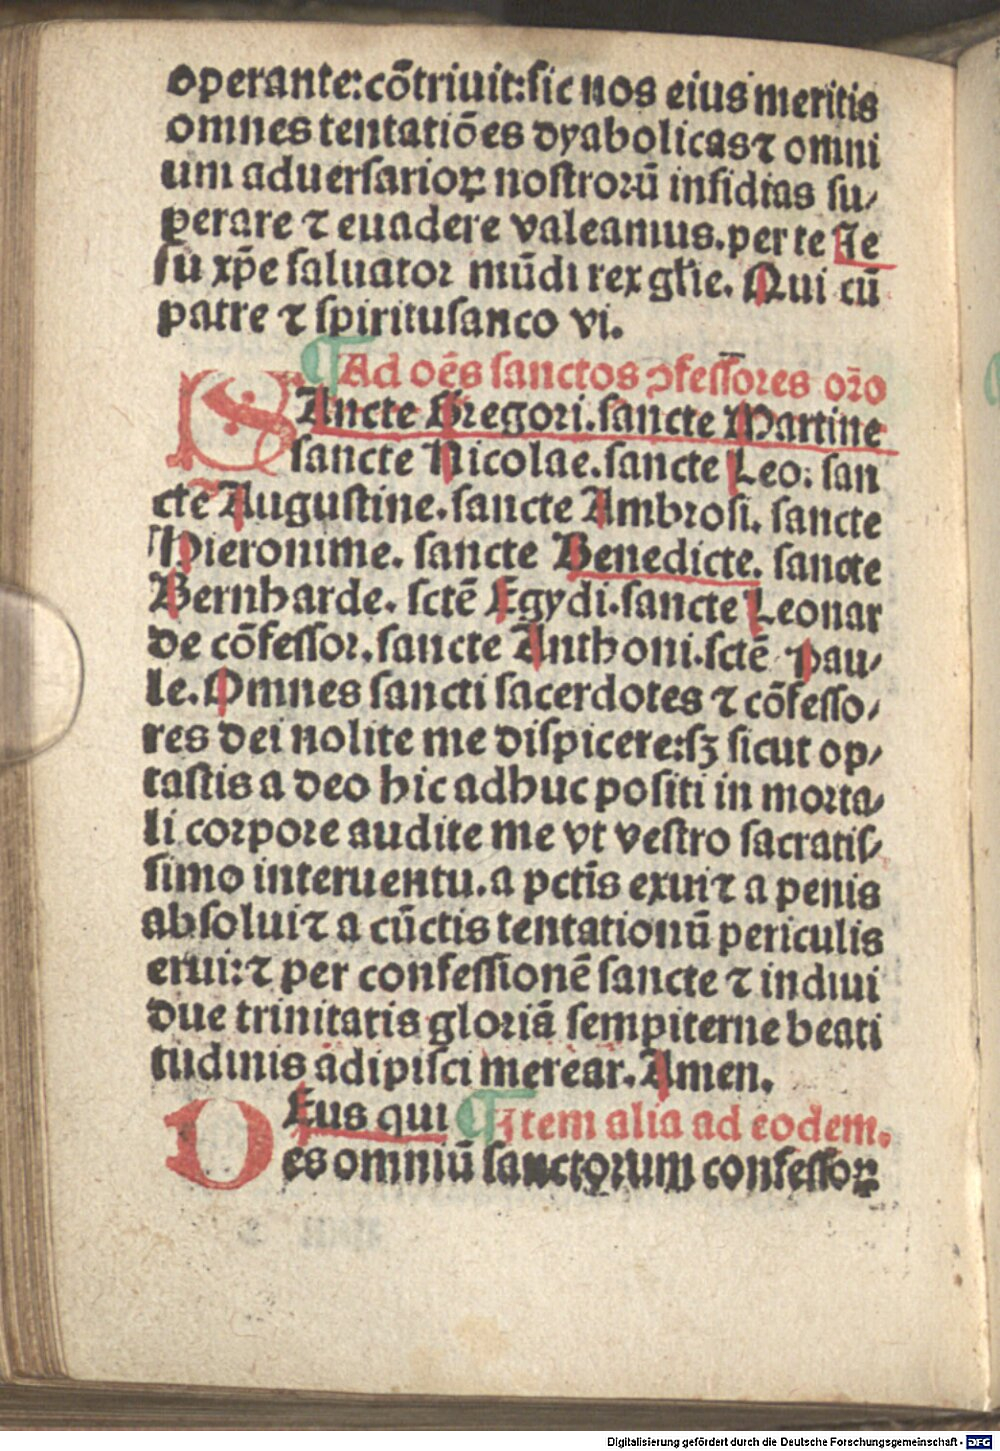 operante:cōtriuit:sic nos eius meritis
omnes tentatiōes dyabolicas⁊ omni
um aduersarioꝝ nostrorū insidias su⸗
perare ⁊ euadere valeamus.per te Je
su xp̄e saluator mūdi rex gl̄ie. Qui cū
patre ⁊ spiritusanco vi.
¶Ad oēs sanctos ꝯfessores or̄o
SAncte Gregori.sancte Martine
sancte Nicolae.sancte Leo: san
cte Augustine.sancte Ambrosi. sancte
Hieronime. sancte Benedicte. sancte
Bernharde. sctē Egydi.sancte Leonar
de cōfessor.sancte Anthoni.sctē Pau⸗
le.Omnes sancti sacerdotes ⁊ cōfesso⸗
res dei nolite me dispicere:sꝫ sicut op⸗
tastis a deo hic adhuc positi in morta⸗
li corpore audite me vt vestro sacratis⸗
simo interuentu.a pctīs exui⁊ a penis
absolui⁊ a cūctis tentationū periculis
erui:⁊ per confessionē sancte ⁊ indiui
due trinitatis gloriā sempiterne beati
tudinis adipisci merear.Amen.
DEus qui ¶Item alia ad eodem.
es omniū sanctorum confessoꝝ
Digitalisierung gefördert durch die Deutsche Forschungsgemeinschaft - DFG